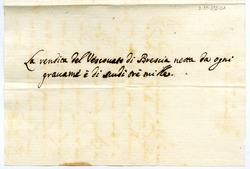 La rendita del Vescovato di Brescia netta da ogni
gravame è di scudi tre mille.